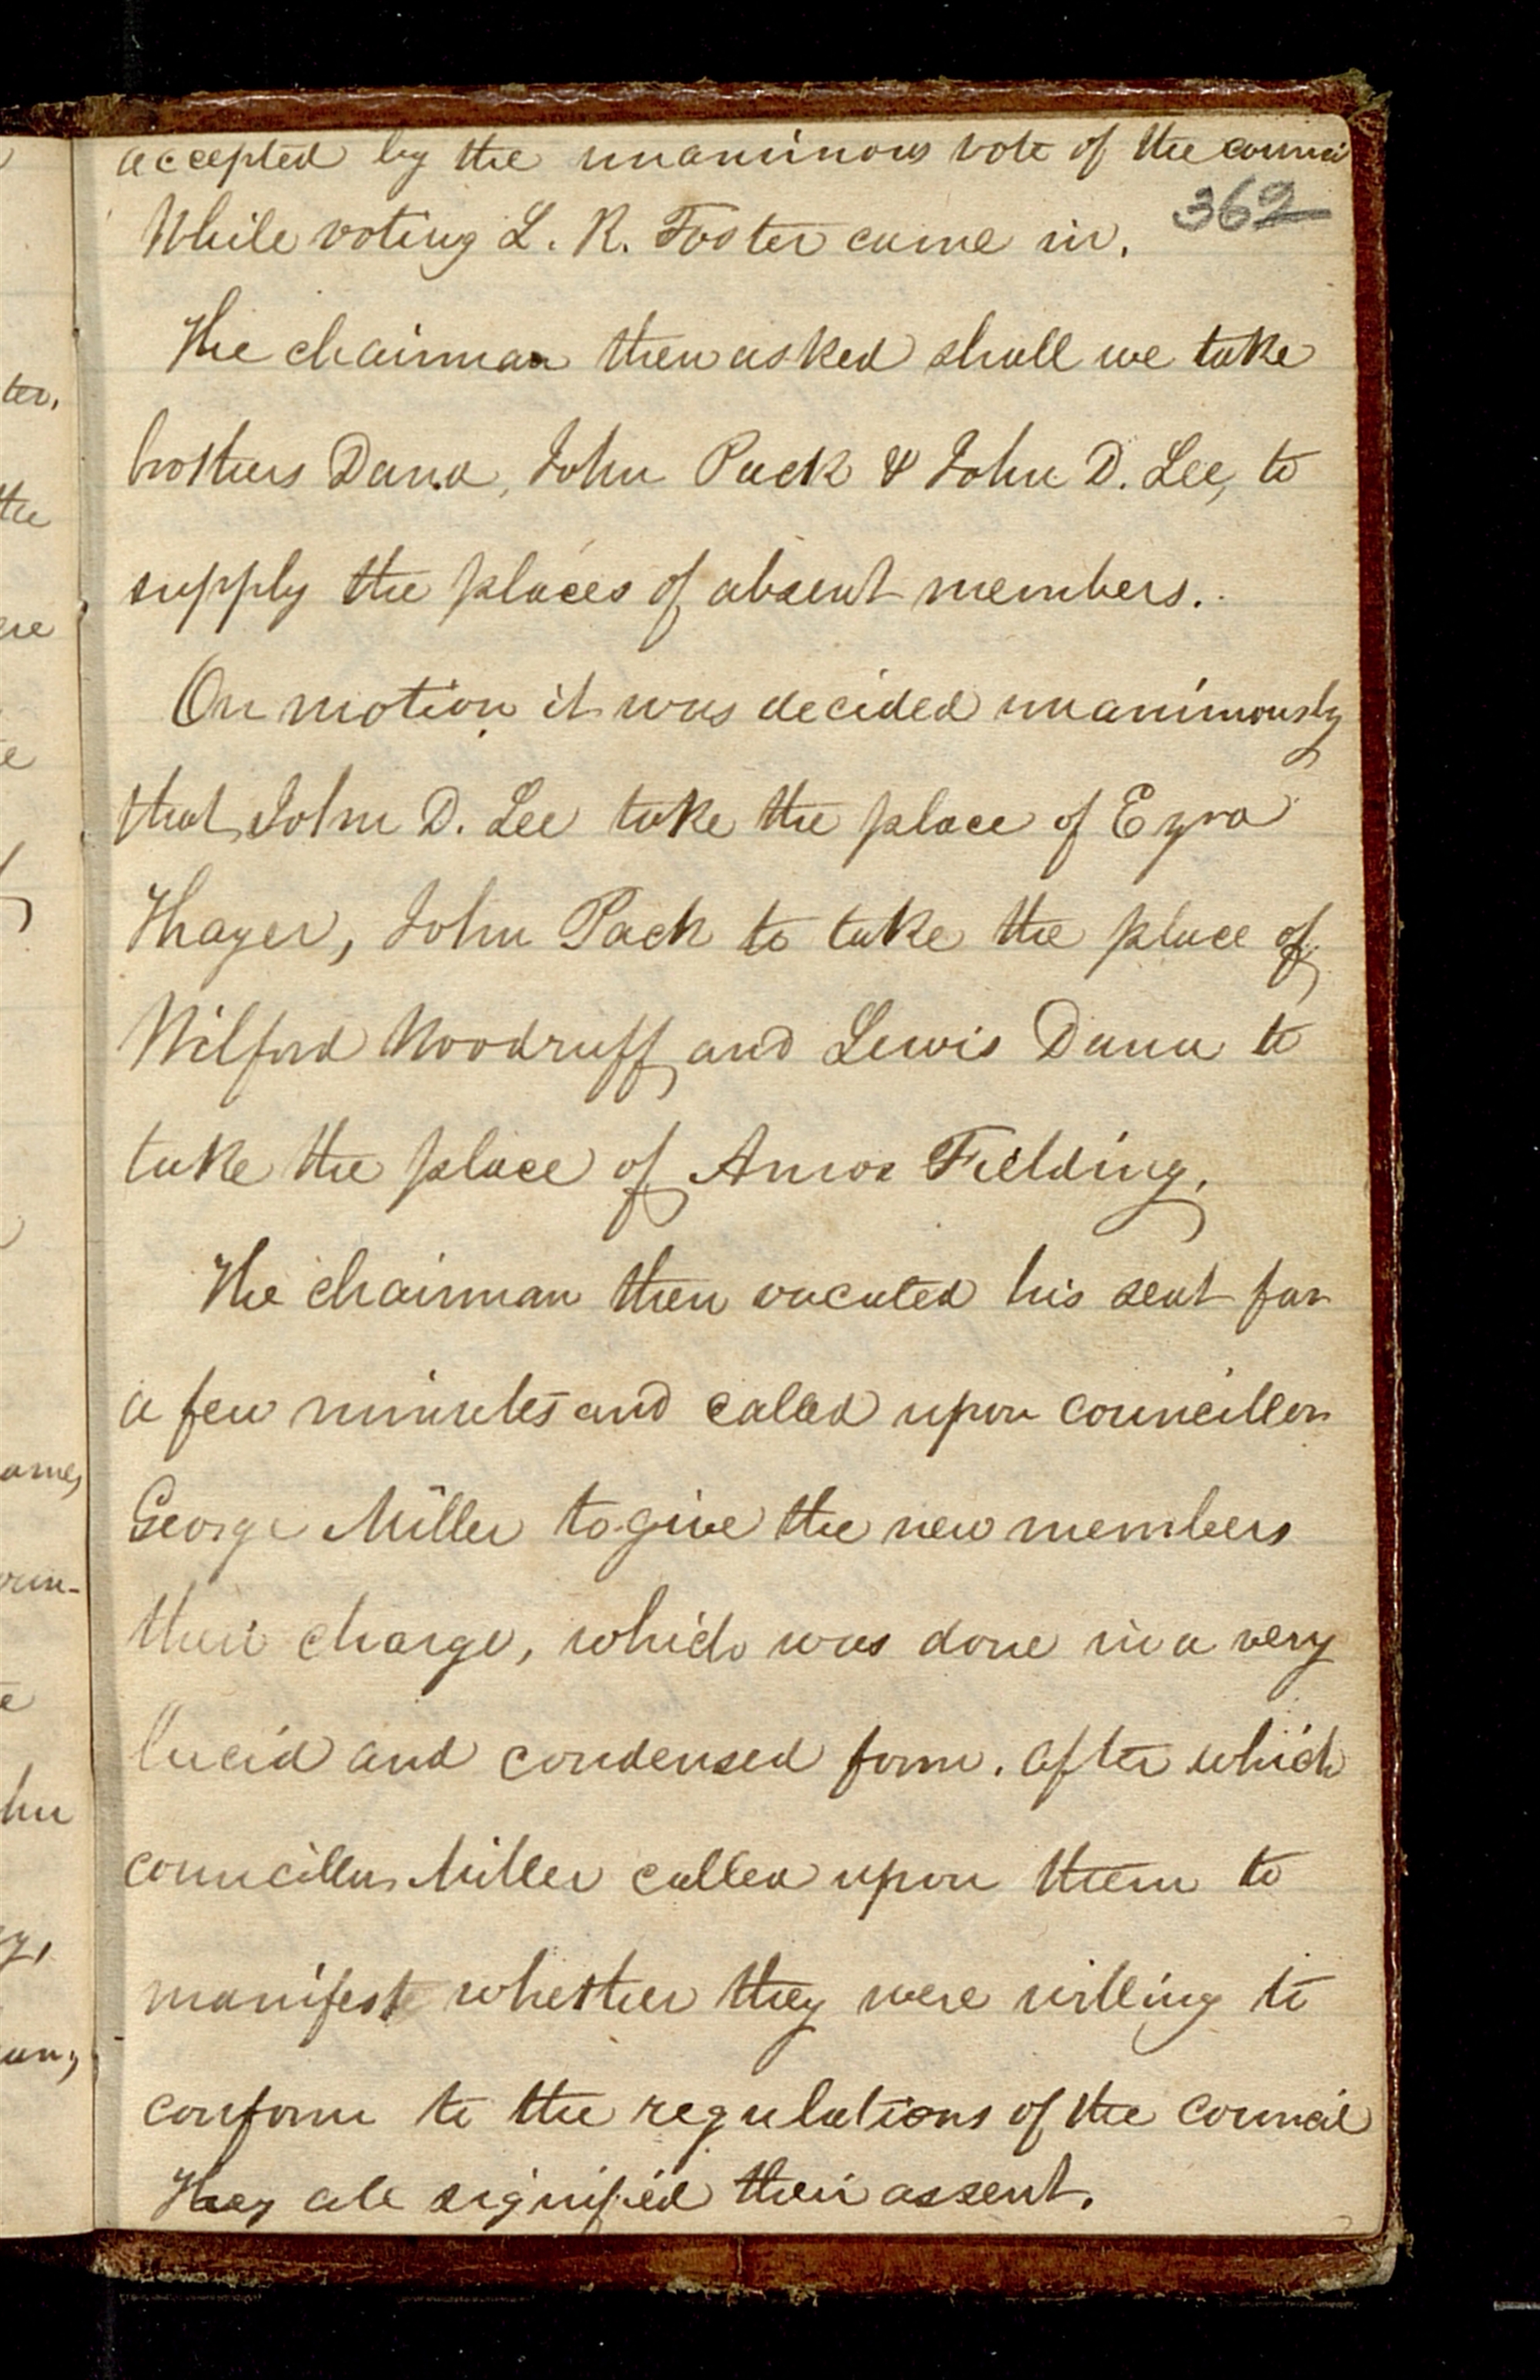 accepted by the unanimous vote of the council
362
While voting L. R. Foster came in.
The chairman then asked shall we take
brothers Dana, John Pack & John D. Lee, to
supply the places of absent members.
On motion it was decided unanimously
that John D. Lee take the place of Ezra
Thayer, John Pack to take the place of
Wilford Woodruff and Lewis Dana to
take the place of Amos Fielding.
The chairman then vacated his seat for
a few minutes and called upon councillor
George Miller to give the new members
their charge, which was done in a very
lucid and condensed form. After which
councillor Miller called upon them to
manifest whether they were willing to
conform to the regulations of the council
They all signified their assent.